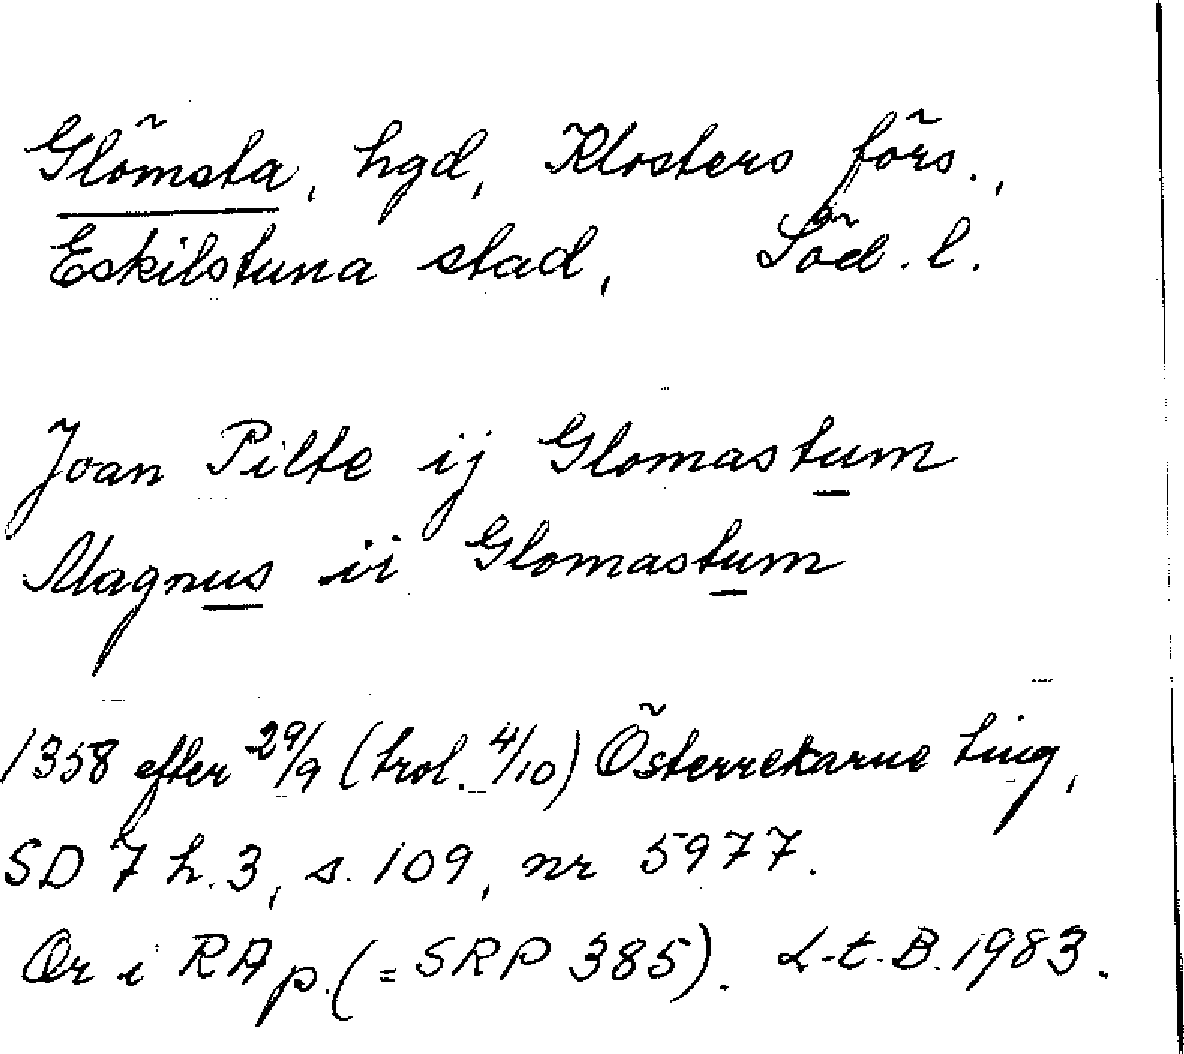 Glömsta, hgd, Klosters förs.,
Eskilstuna stad, Söd. l.
Joan Pilte ij Glomastum
Magnus ii Glomastum
1358 efter 29/9 (trol. 4/10) Österrekarne ting,
SD 7 h. 3, s. 109, nr 5977.
Or i RAp. (= SRP 385). L-t. B. 1983.